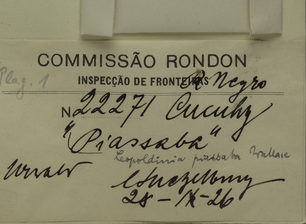 Plag. 1
COMMISSÃO RONDON
INSPECÇÃO DE FRONTEIRAS
R. Negro
N 22271 Cucuhy
"Piassaba"
Leopoldinia piassaba Wallace
Luetzelburg
28-IX-26